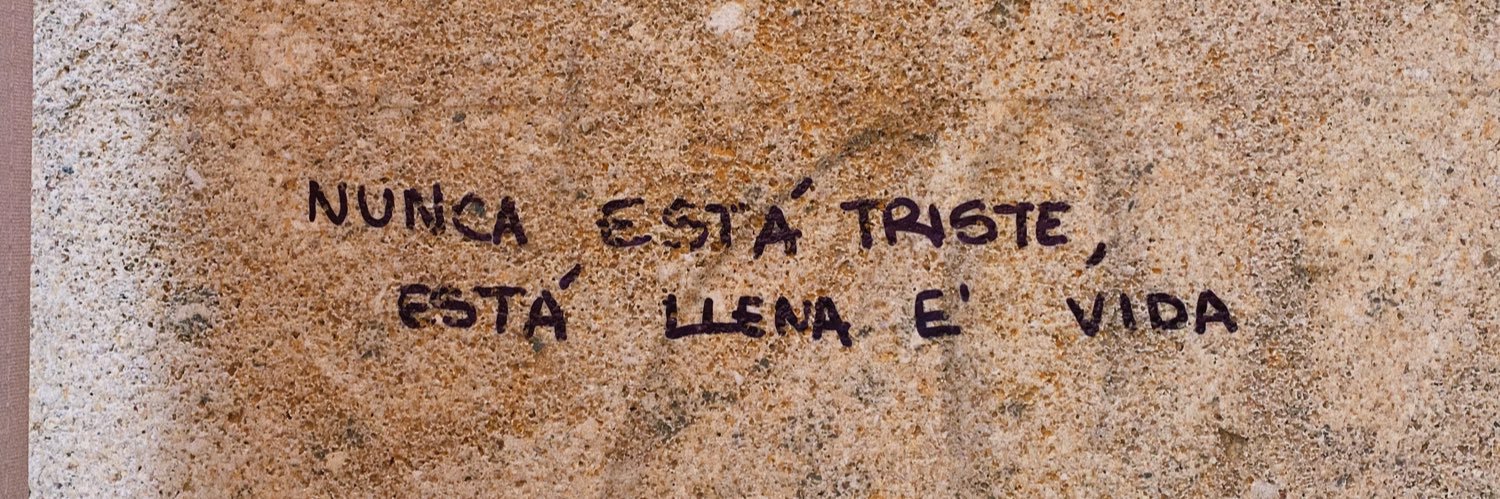 NUNCA ESTÁ TRISTE,
ESTÁ LLENA E' VIDA